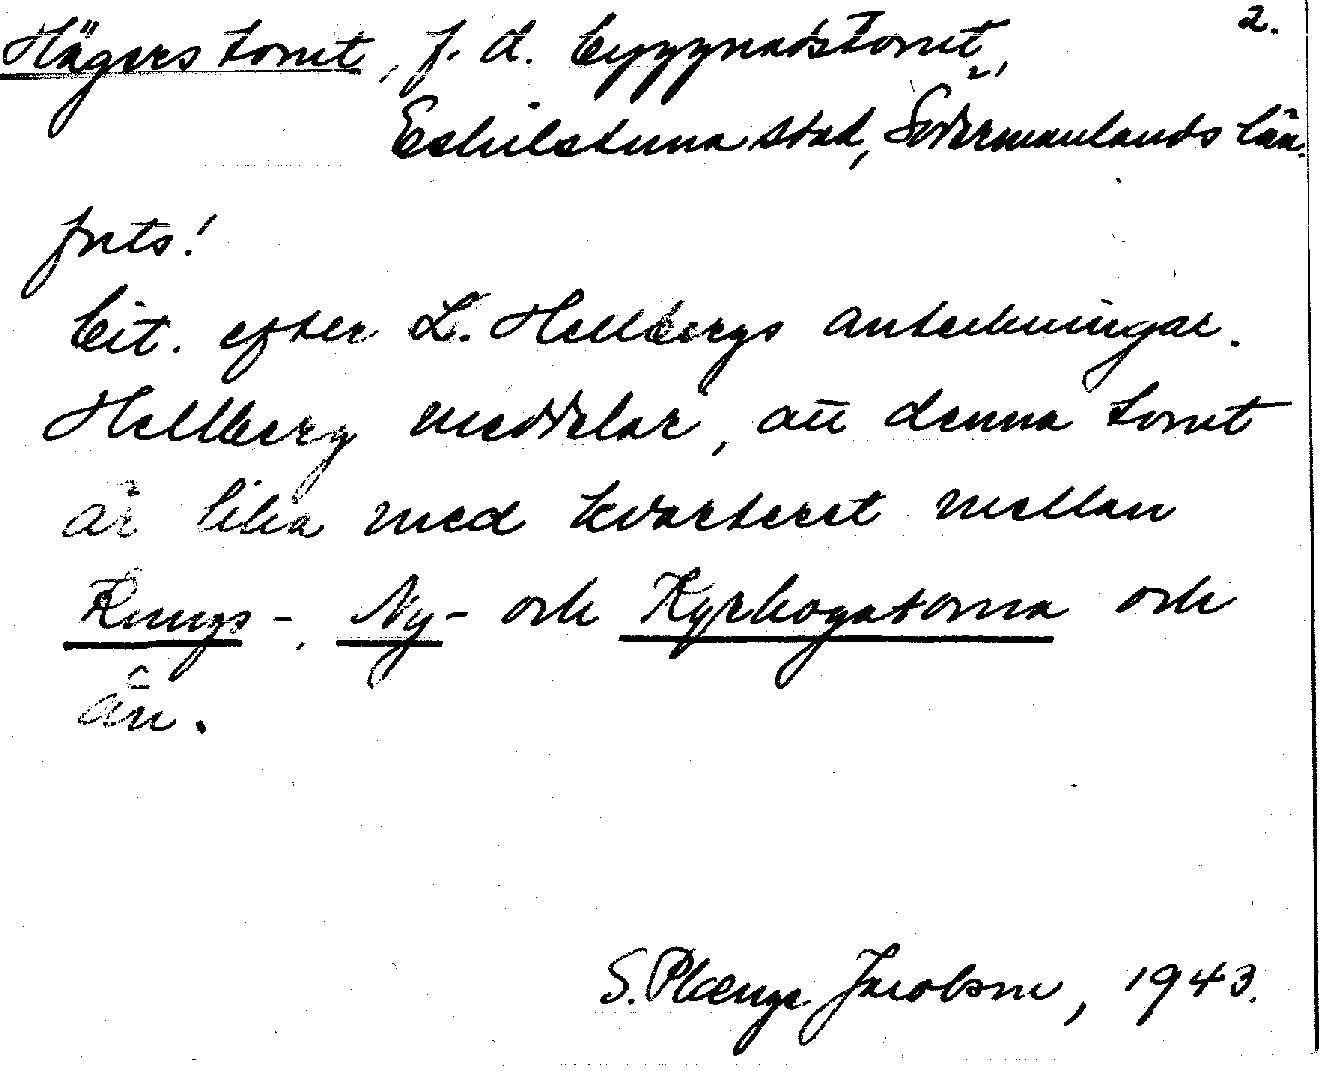 2.
Hägers tomt, f. d. byggnadstomt,
Eskilstuna stad, Södermanlands län.
forts!
Cit. efter L. Hellbergs anteckningar.
Hellberg meddelar, att denna tomt
är lika med kvarteret mellan
Kungs-, Ny- och Kyrkogatorna och
ån.
S. Plænge Jacobson, 1943.